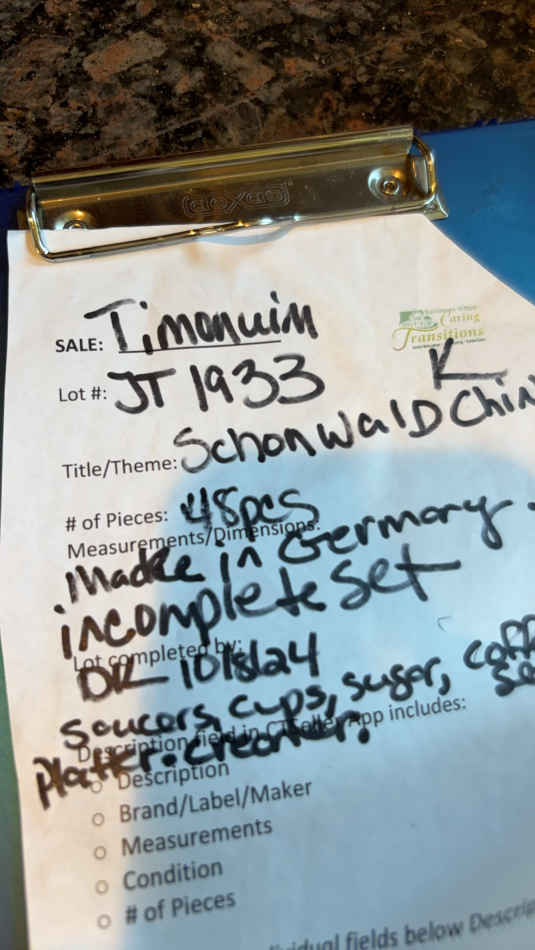 doxdo
SALE: Timonium
Caring
Transitions
Lot #: JT 1933
K
Title/Theme: Schonwald Chin
# of Pieces: 48pcs
Measurements/Dimensions:
. Made in Germany.
incomplete set
Lot completed by:
DK 10/8/24
saucers, cups, sugar, coff
se
Description field in CTSeller App includes:
platter. creamer.
○ Description
○ Brand/Label/Maker
○ Measurements
○ Condition
○ # of Pieces
dividual fields below Descrip